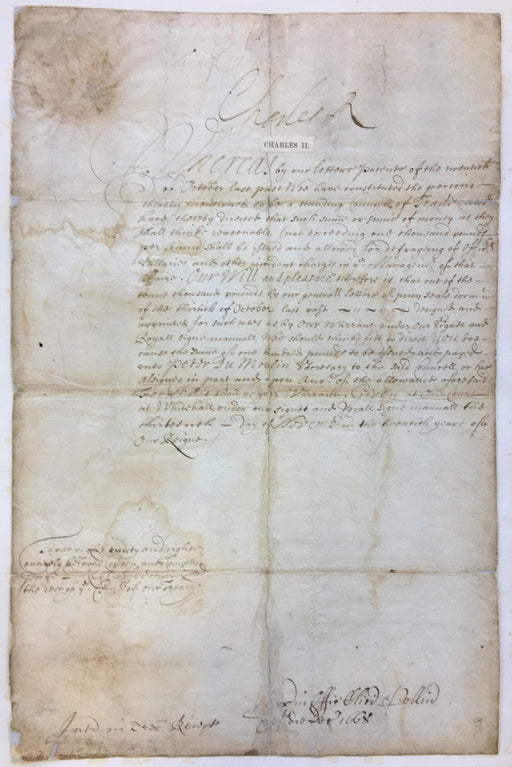 Charles R
CHARLES II.
Whereas by our letters Patents of the twentieth
of October last past Wee have constituted the persons
therein mentioned to be a standing Councell of Trade
have thereby directed that such summe or summs of money as they
shall thinke reasonable (not exceeding one thousand pounds
per Annum shall be issued and allowed for defraying of
Sallaries and other incident charges in ye Managemt of that
affaire. Our Will and pleasure therefore is, that out of the
tenne thousand pounds by our generall letters of privy seale dormt
of the thirtith of October last past designed and
appointed for such uses as by Our Warrant under Our Signet and
Royall Signe manuall Wee should thinke fitt to direct You doe
cause the summe of one hundred pounds to be issued and payed
unto Peter Du Moulin Secretary to the said Councell or his
assignes in part and upon Accot of the allowance aforesaid
For wch this shalbe your Warrant. Given at Our Court
at Whitehall under our Signet and Royall Signe manuall the
thirteenth day of Novembr in the twentieth yeare of
Our Reigne.
To our right trusty and right
entirely
the rest of ye of our Treãry.
1668
Intd in Recpt